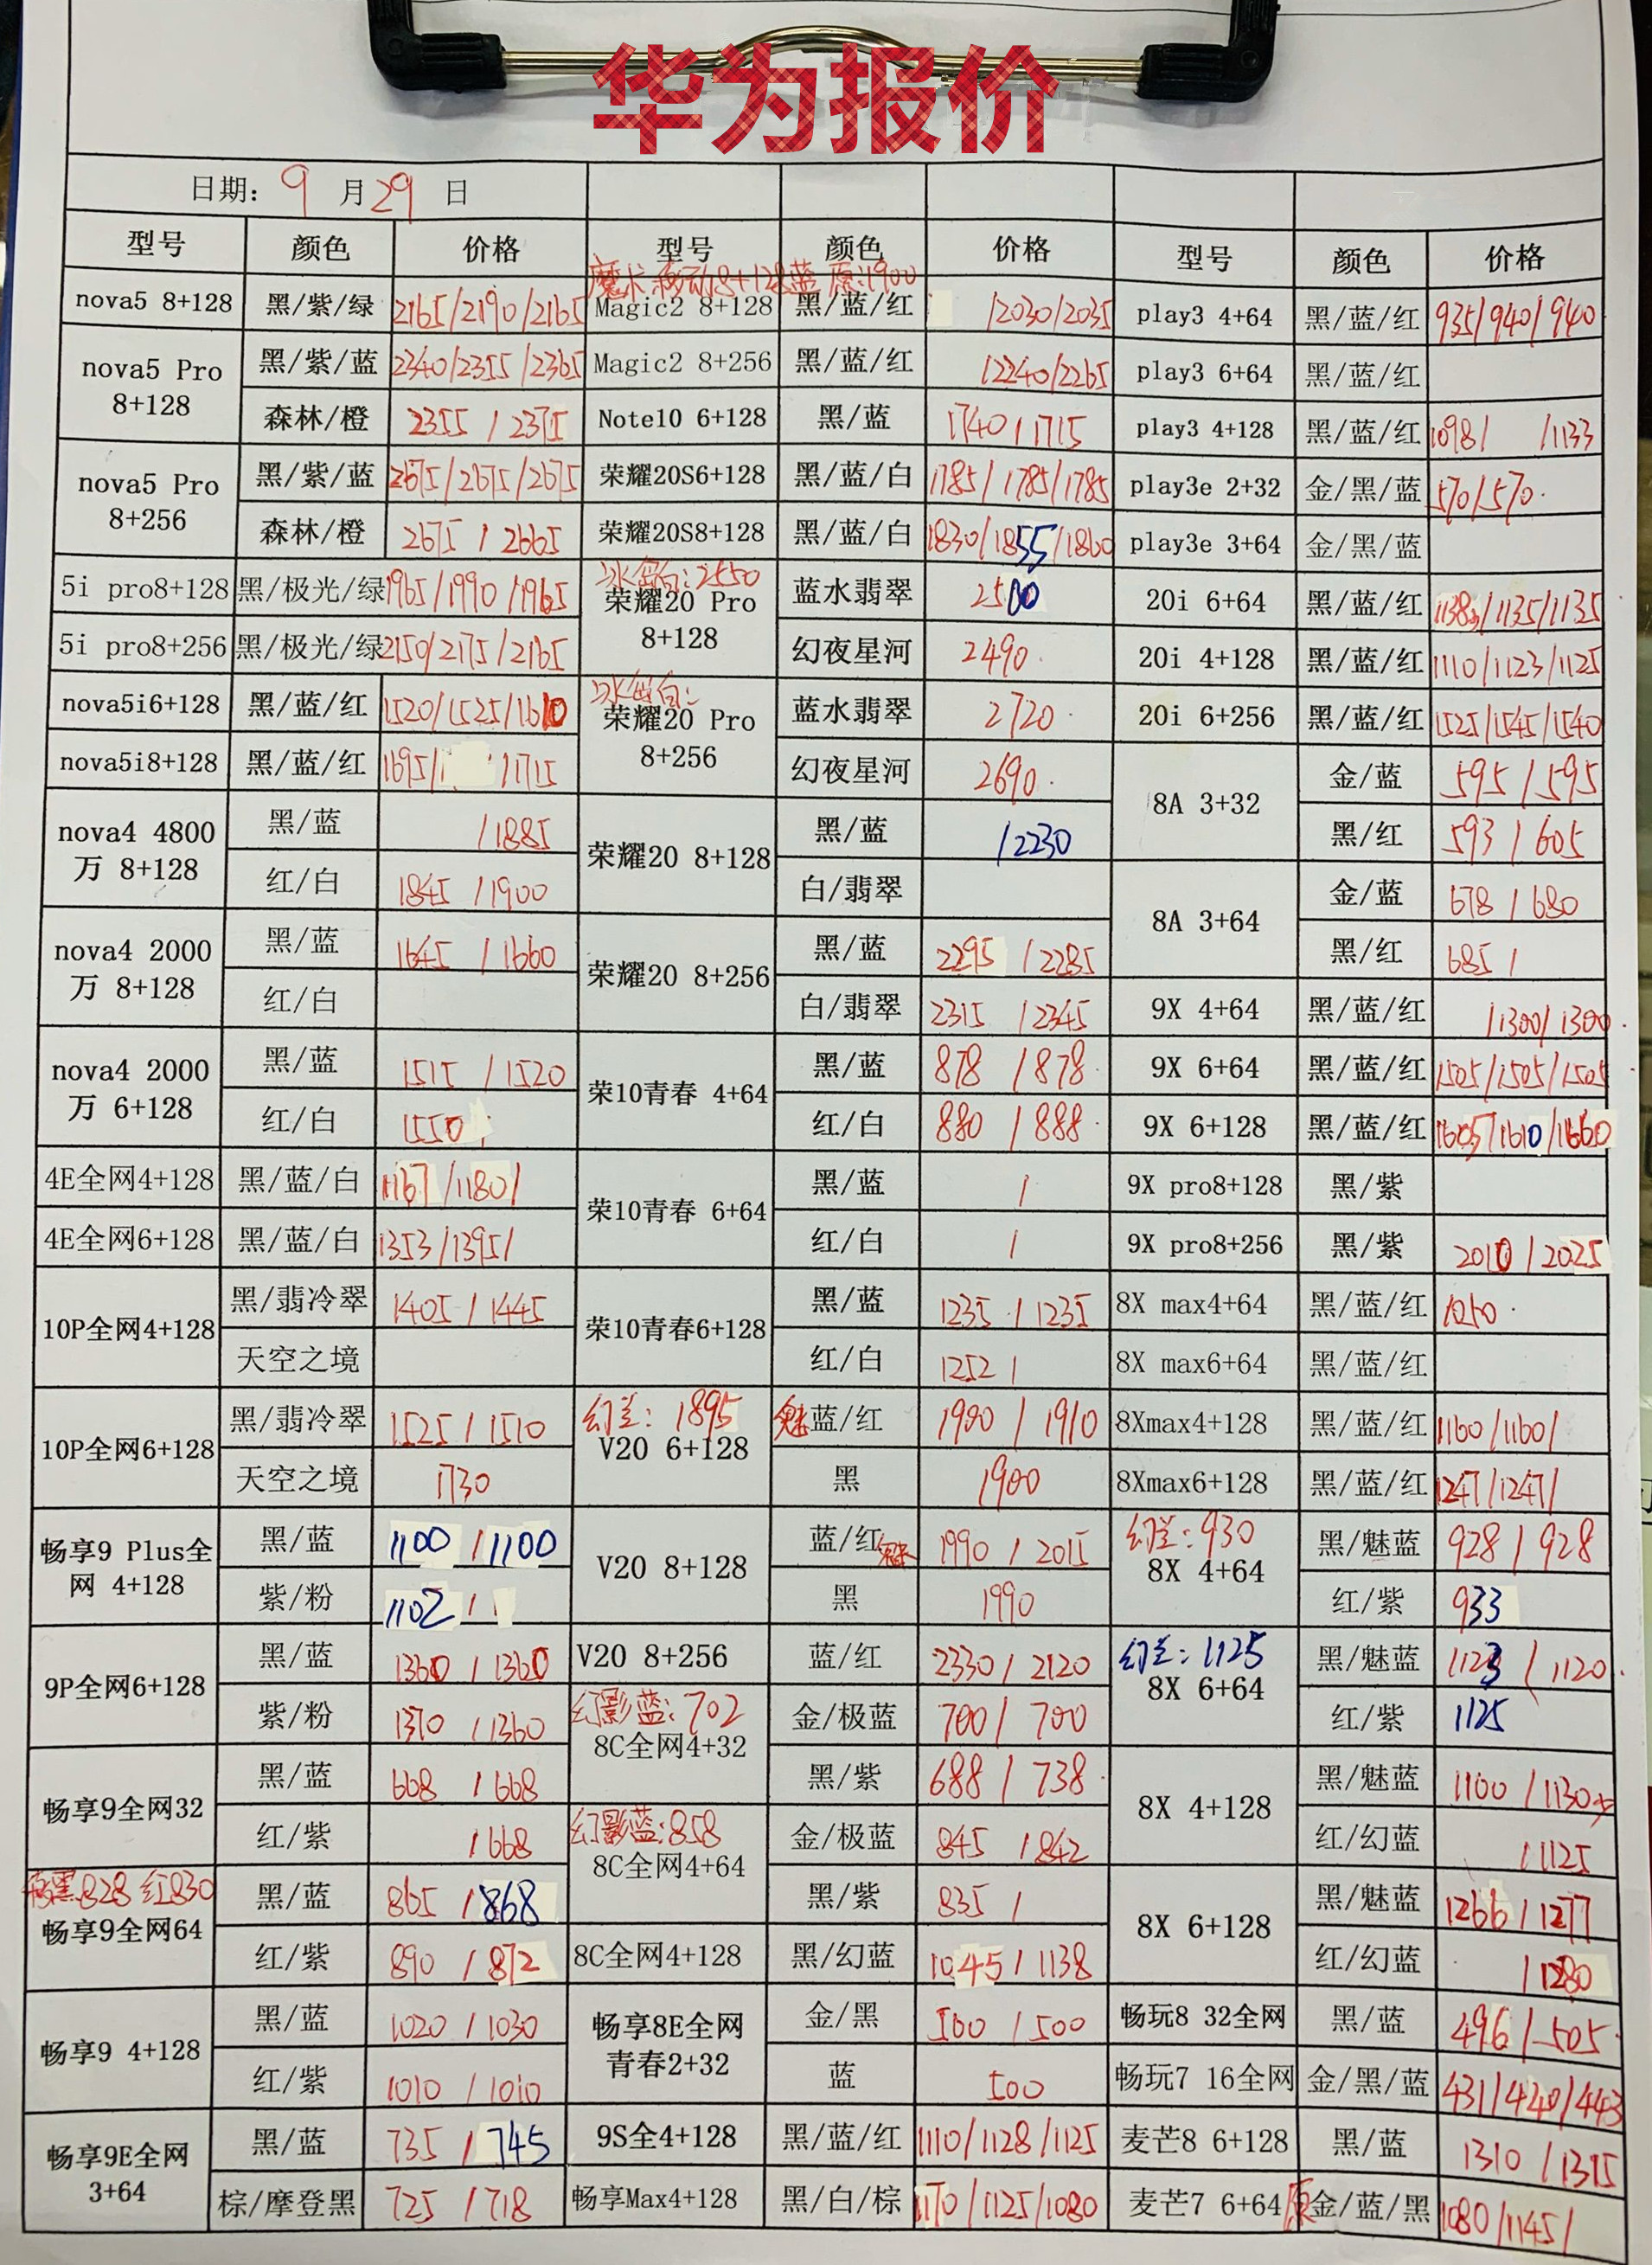 华为报价
日期: 9 月 29 日
型号 颜色 价格 型号 颜色 价格 型号 颜色 价格
魔术 8+128蓝 原:1900
nova5 8+128 黑/紫/绿 2165/2190/2165 Magic2 8+128 黑/蓝/红 /2030/2035 play3 4+64 黑/蓝/红 935/940/940
nova5 Pro 8+128 黑/紫/蓝 2340/2355/2365 Magic2 8+256 黑/蓝/红 /2240/2265 play3 6+64 黑/蓝/红
森林/橙 2355 / 2375 Note10 6+128 黑/蓝 1740/1715 play3 4+128 黑/蓝/红 1098/ /1133
nova5 Pro 8+256 黑/紫/蓝 2675/2675/2675 荣耀20S6+128 黑/蓝/白 1785/1785/1785 play3e 2+32 金/黑/蓝 570/570
森林/橙 2675 / 2665 荣耀20S8+128 黑/蓝/白 1830/1855/1860 play3e 3+64 金/黑/蓝
5i pro8+128 黑/极光/绿 1965/1990/1965 冰岛白:2550 荣耀20 Pro 8+128 蓝水翡翠 2500 20i 6+64 黑/蓝/红 1138/1135/1135
5i pro8+256 黑/极光/绿 2150/2175/2165 幻夜星河 2490 20i 4+128 黑/蓝/红 1110/1123/1125
nova5i6+128 黑/蓝/红 1520/1525/1610 冰岛白: 荣耀20 Pro 8+256 蓝水翡翠 2720 20i 6+256 黑/蓝/红 1525/1545/1540
nova5i8+128 黑/蓝/红 1695/ /1715 幻夜星河 2690 8A 3+32 金/蓝 595/595
nova4 4800万 8+128 黑/蓝 /1885 荣耀20 8+128 黑/蓝 /2230 黑/红 593/605
红/白 1845 /1900 白/翡翠 8A 3+64 金/蓝 678/680
nova4 2000万 8+128 黑/蓝 1645 /1660 荣耀20 8+256 黑/蓝 2295 /2285 黑/红 685/
红/白 白/翡翠 2315 /2345 9X 4+64 黑/蓝/红 /1300/1300
nova4 2000万 6+128 黑/蓝 1515 /1520 荣10青春 4+64 黑/蓝 878 /878 9X 6+64 黑/蓝/红 1505/1505/1505
红/白 1550 红/白 880 /888 9X 6+128 黑/蓝/红 1605/1610/1660
4E全网4+128 黑/蓝/白 1167/1180/ 荣10青春 6+64 黑/蓝 / 9X pro8+128 黑/紫
4E全网6+128 黑/蓝/白 1353/1395/ 红/白 / 9X pro8+256 黑/紫 2010/2025
10P全网4+128 黑/翡冷翠 1405/1445 荣10青春6+128 黑/蓝 1235/1235 8X max4+64 黑/蓝/红 1050
天空之境 红/白 1252/ 8X max6+64 黑/蓝/红
10P全网6+128 黑/翡冷翠 1525/1510 幻兰:1895 V20 6+128 魅蓝/红 1900/1910 8Xmax4+128 黑/蓝/红 1160/1160/
天空之境 1730 黑 1900 8Xmax6+128 黑/蓝/红 1247/1247/
畅享9 Plus全网 4+128 黑/蓝 1100/1100 V20 8+128 蓝/红 魅 1990/2015 幻兰:930 8X 4+64 黑/魅蓝 928/928
紫/粉 1102/ 黑 1990 红/紫 933
9P全网6+128 黑/蓝 1360/1360 V20 8+256 蓝/红 2330/2120 幻兰:1125 8X 6+64 黑/魅蓝 1123/1120
紫/粉 1370/1360 幻影蓝:702 8C全网4+32 金/极蓝 700/700 红/紫 1125
畅享9全网32 黑/蓝 668 /668 黑/紫 688/738 8X 4+128 黑/魅蓝 1100/1130
红/紫 /668 幻影蓝:858 8C全网4+64 金/极蓝 845 /842 红/幻蓝 /1125
黑828 红830 畅享9全网64 黑/蓝 865/868 黑/紫 835 / 8X 6+128 黑/魅蓝 1266/1277
红/紫 890 /872 8C全网4+128 黑/幻蓝 1045/1138 红/幻蓝 /1280
畅享9 4+128 黑/蓝 1020/1030 畅享8E全网青春2+32 金/黑 500/500 畅玩8 32全网 黑/蓝 496/505
红/紫 1010/1010 蓝 500 畅玩7 16全网 金/黑/蓝 431/440/443
畅享9E全网 3+64 黑/蓝 735/745 9S全4+128 黑/蓝/红 1110/1128/1125 麦芒8 6+128 黑/蓝 1310/1315
棕/摩登黑 725 /718 畅享Max4+128 黑/白/棕 1170/1125/1080 麦芒7 6+64 原 金/蓝/黑 1080/1145/